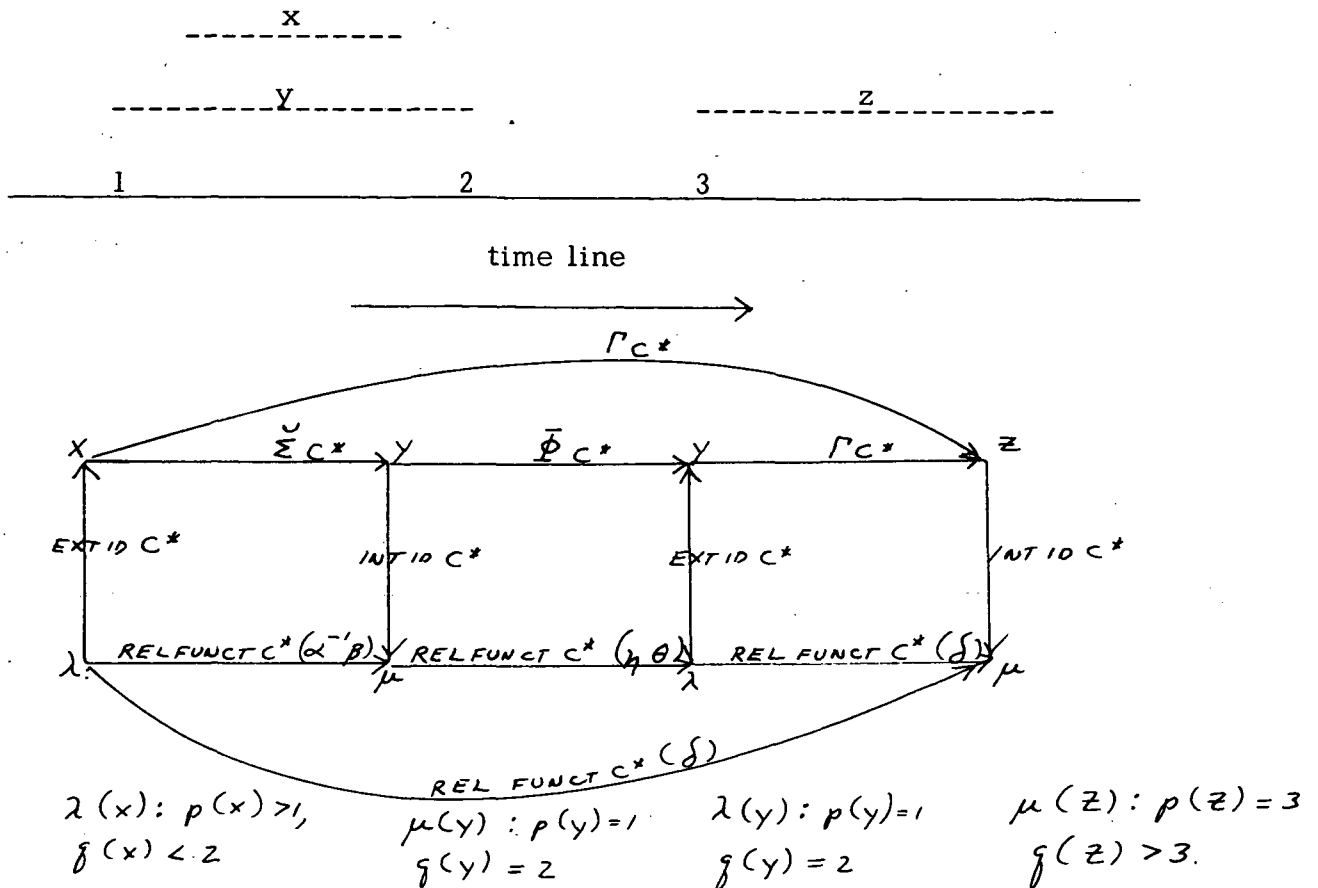 x
y z
1 2 3
time line
Γ C*
x Σ̆ C* y Φ̄ C* y Γ C* z
EXT ID C* INT ID C* EXT ID C* INT ID C*
λ REL FUNCT C* (α⁻¹β) μ REL FUNCT C* (η θ) λ REL FUNCT C* (δ) μ
REL FUNCT C* (δ)
λ(x): p(x) >1, μ(y) : p(y)=1 λ(y): p(y)=1 μ(z): p(z)=3
q(x) < 2 q(y) = 2 q(y) = 2 q(z) >3.